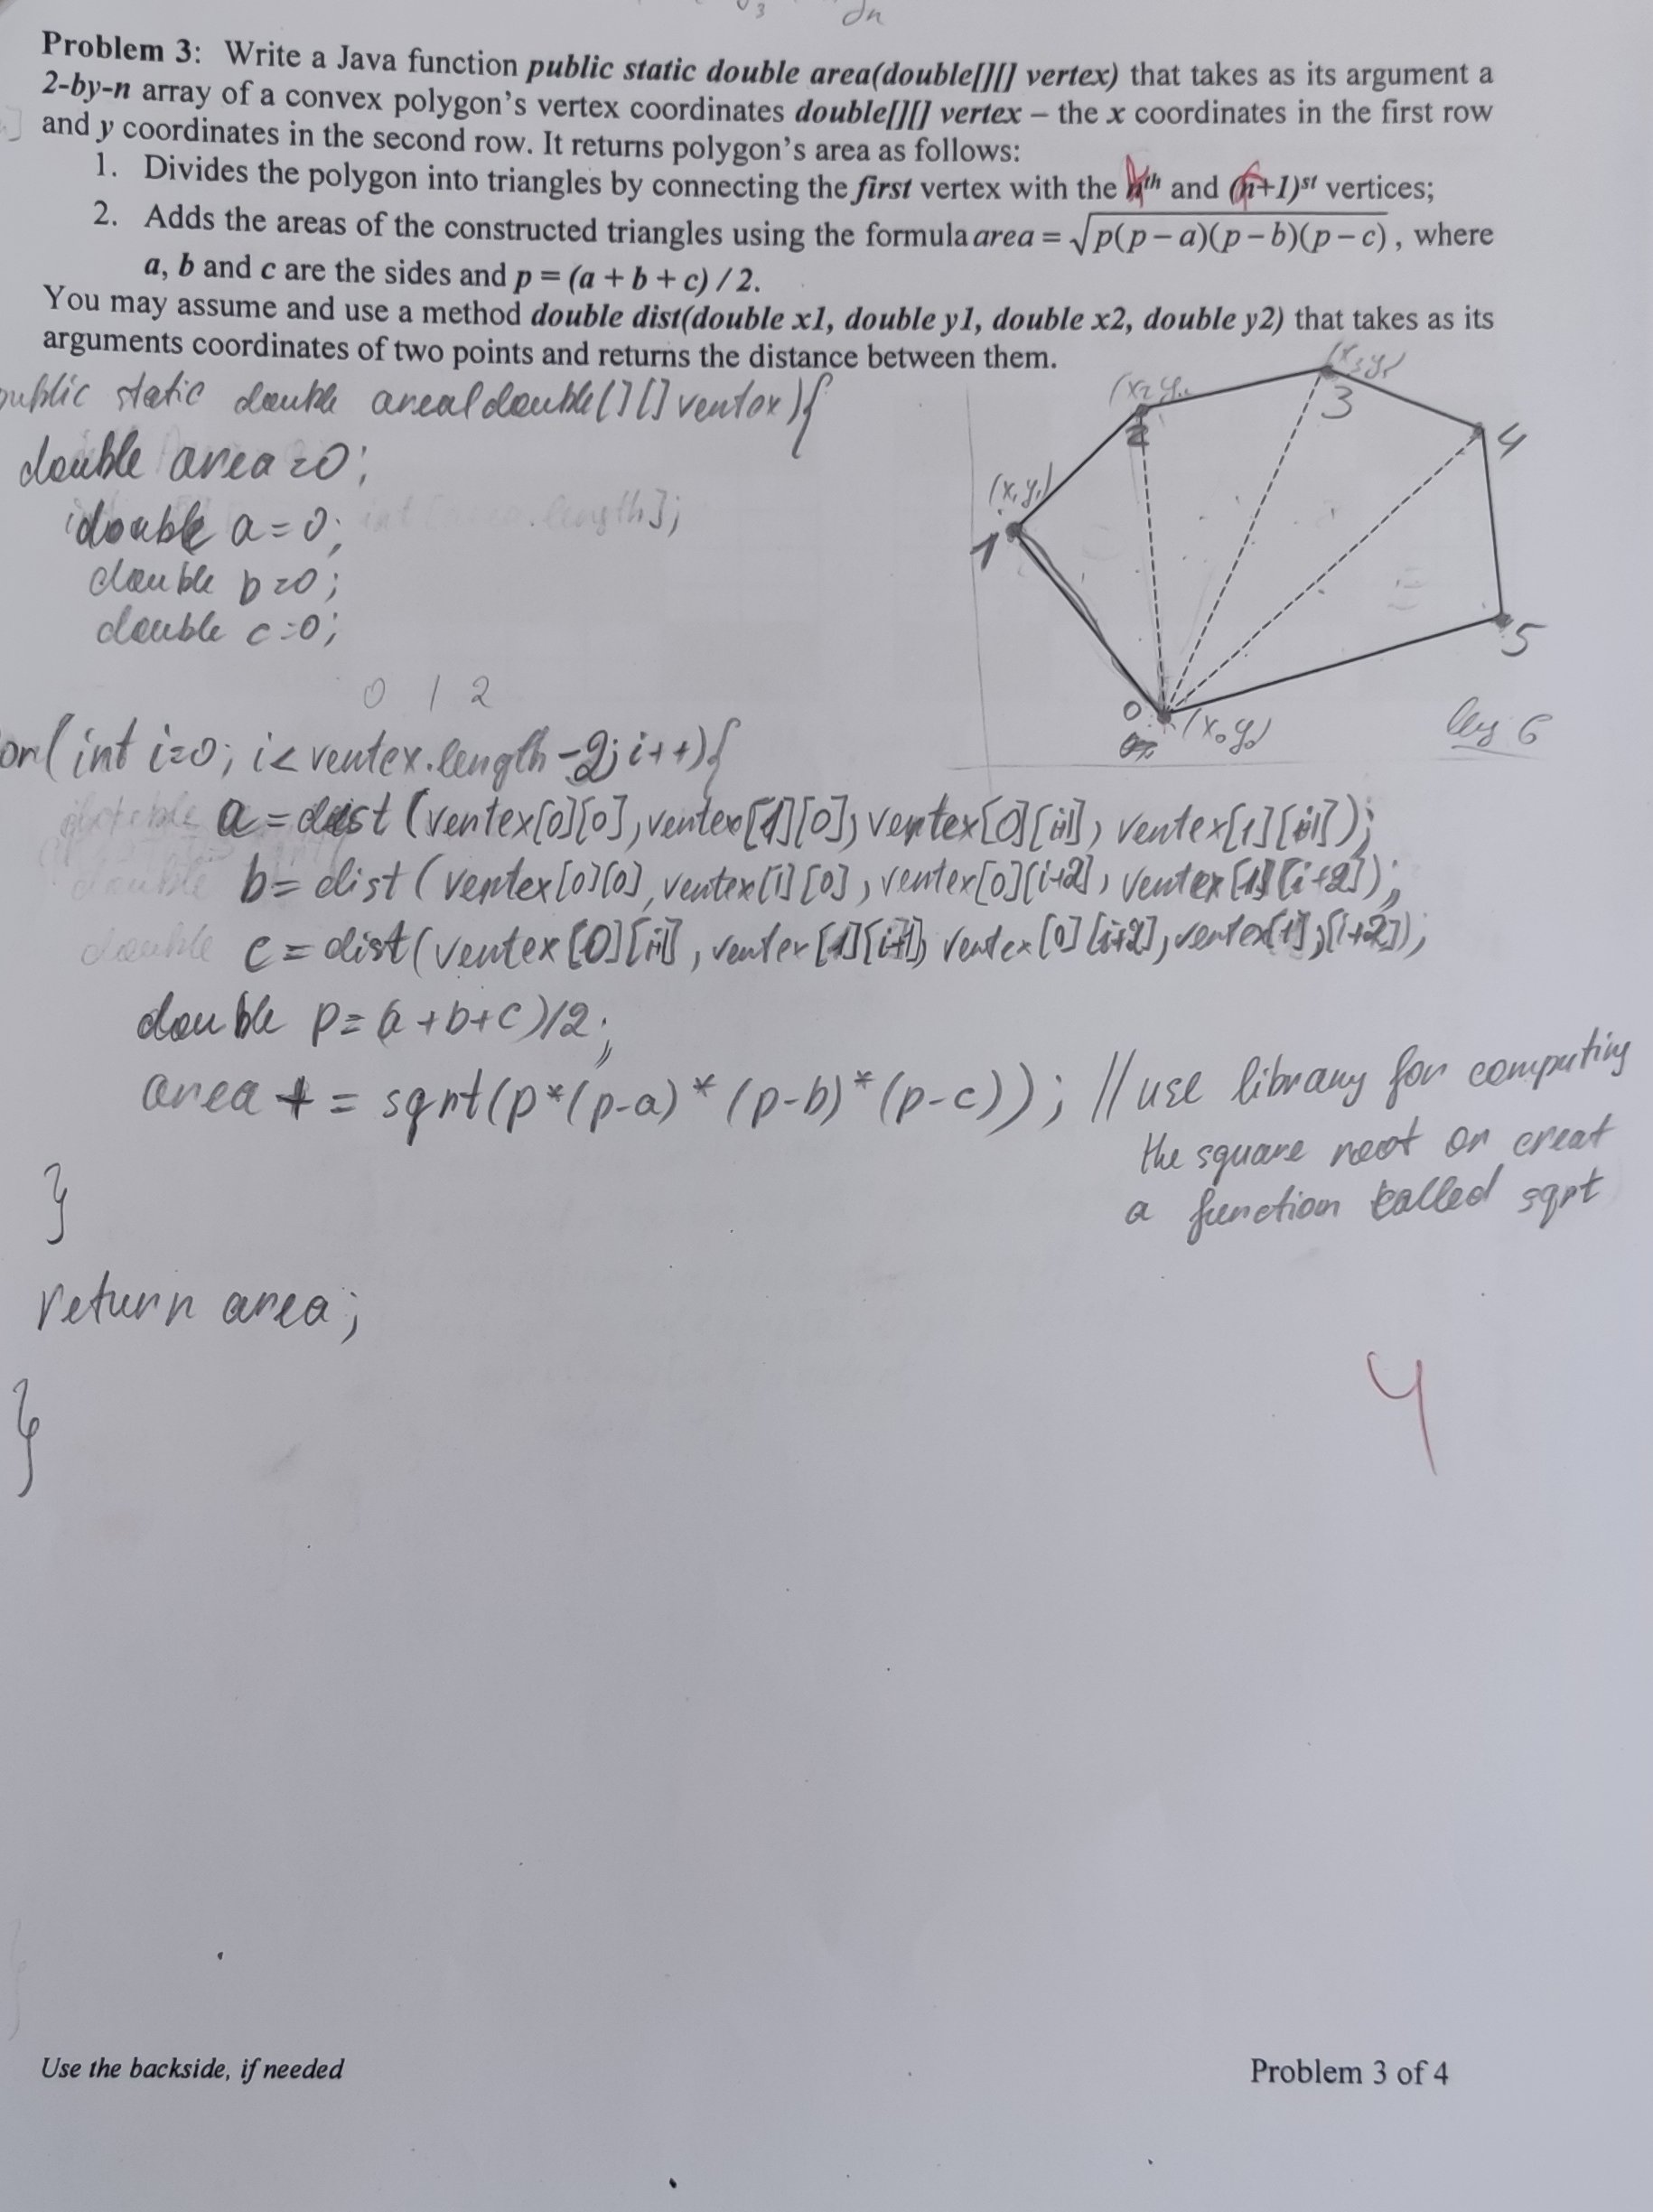 Problem 3: Write a Java function public static double area(double[][] vertex) that takes as its argument a
2-by-n array of a convex polygon's vertex coordinates double[][] vertex – the x coordinates in the first row
and y coordinates in the second row. It returns polygon's area as follows:
1. Divides the polygon into triangles by connecting the first vertex with the kth and (k+1)st vertices;
2. Adds the areas of the constructed triangles using the formula area = √p(p – a)(p – b)(p – c) , where
a, b and c are the sides and p = (a + b + c) / 2.
You may assume and use a method double dist(double x1, double y1, double x2, double y2) that takes as its
arguments coordinates of two points and returns the distance between them.
public static double area(double[][] vertex){
double area=0;
double a=0;
double b=0;
double c=0;
(x2 y2
3
4
(x1 y1)
1
2
5
0
(x0 y0)
6
0 1 2
for(int i=0; i< vertex.length-2; i++){
a=dist(vertex[0][0],vertex[1][0], vertex[0][i+1], vertex[1][i+1]);
b= dist(vertex[0][0],vertex[1][0], vertex[0][i+2], vertex[1][i+2]);
c= dist(vertex[0][i+1], vertex[1][i+1], vertex[0][i+2], vertex[1],[i+2]);
double p=(a+b+c)/2;
area += sqrt(p*(p-a)*(p-b)*(p-c)); //use library for computing
the square root or creat
a function called sqrt
}
return area;
}
4
Use the backside, if needed
Problem 3 of 4